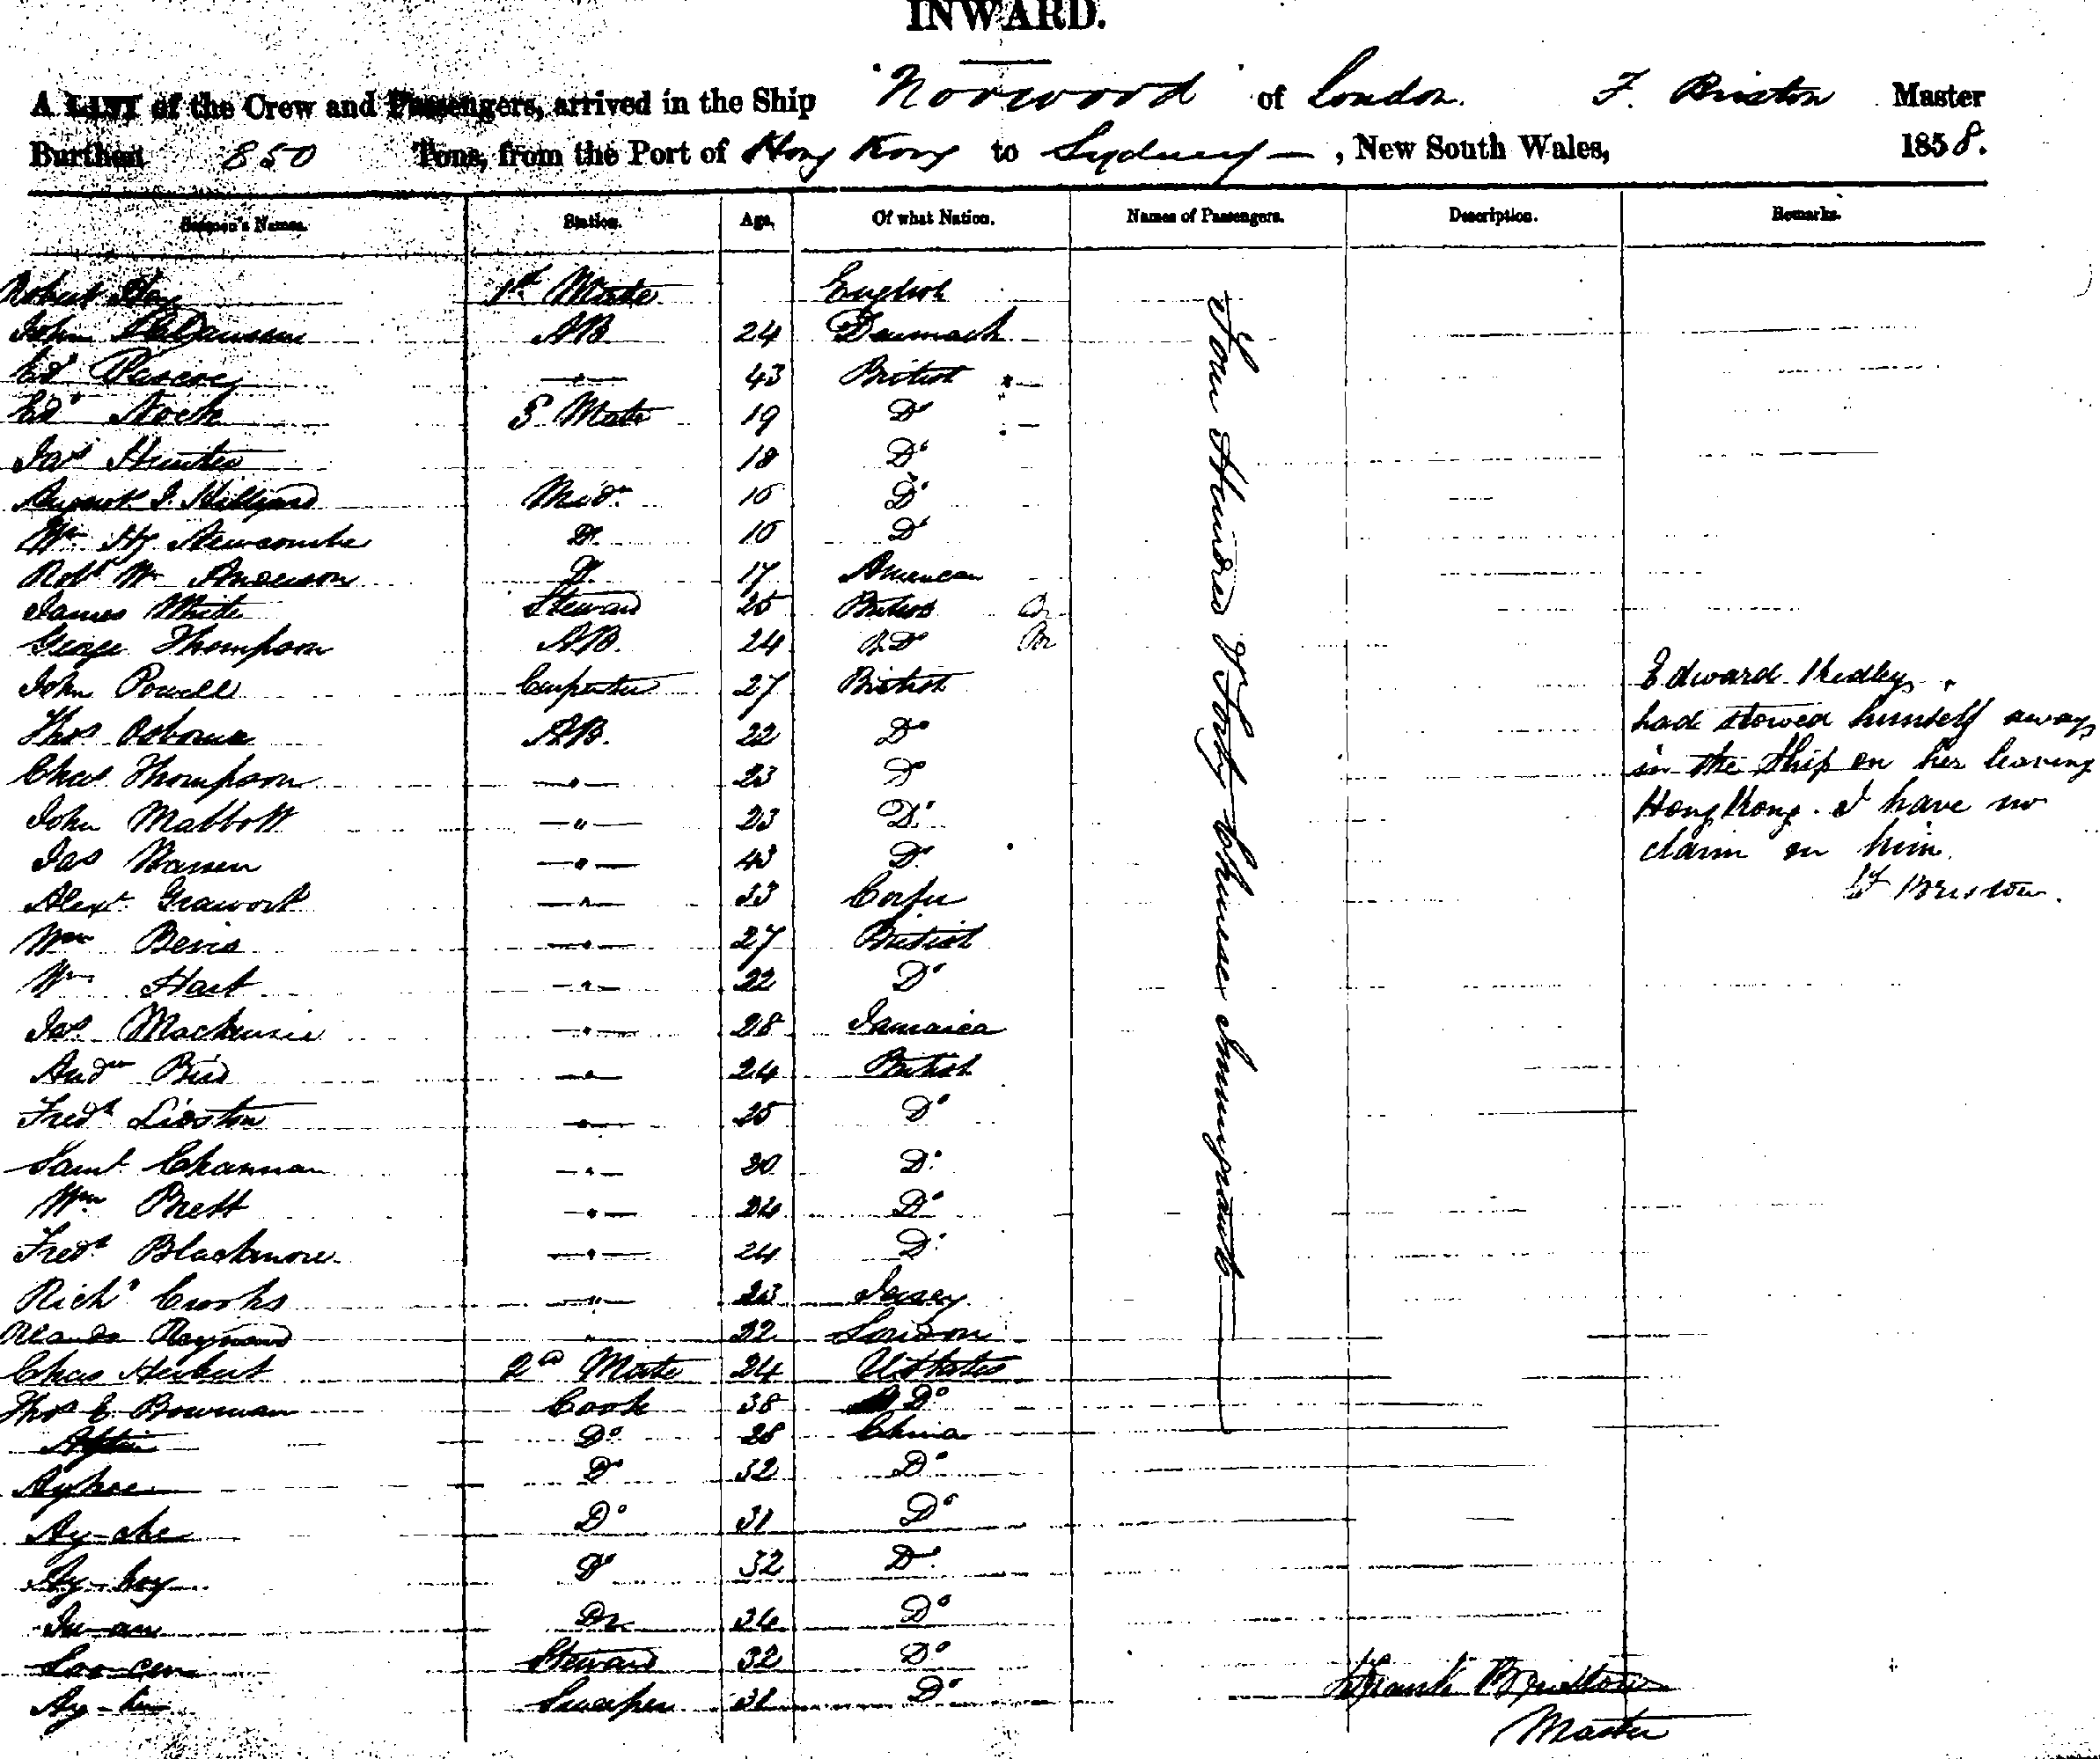 INWARD.
A LIST of the Crew and Passengers, arrived in the Ship "Norwood" of London. F. Bristow Master
Burthen 850 Tons, from the Port of Hong Kong to Sydney — , New South Wales, 1858.
Seamen's Names. Station. Age. Of what Nation. Names of Passengers. Description. Remarks.
Robert Hay 1st Mate English
John AB 24 Denmark
Ed Pascoe —"— 43 British
Ed Nock 3 Mate 19 Do
Jas Hunter 18 Do
J. Hillyard Midn 16 Do
Wm Hy Newcombe Do 16 Do
Robt Wm Anderson Do 17 American
James White Steward 25 British
George Thompson AB 24 Do
John Powell Carpenter 27 British
Thos Osborne AB. 22 Do
Chas Thompson —"— 23 Do
John Mabbott —"— 23 Do
Jas Warren —"— 43 Do
Alexr —"— 33 Corfu
Wm Bevis —"— 27 British
Wm Hart —"— 22 Do
Jas Mackenzie —"— 28 Jamaica
Andw Bird —"— 24 British
Fredk —"— 25 Do
Saml Channan —"— 20 Do
Wm Brett —"— 24 Do
Fredk Blackmore —"— 24 Do
Richd Crooks —"— 23 Jersey
Raymond " 22 London
Chas Herbert 2nd Mate 24 U States
Thos E. Bowman Cook 38 Do
Do 28 China
Do 32 Do
Ay-che Do 31 Do
Ay-hoy Do 32 Do
34 Do
Steward 32 Do
Sweeper 31 Do
Four Hundred & Forty Chinese Immigrants
Edward Ridley,
had stowed himself away
in the Ship on her leaving
Hong Kong. I have no
claim on him.
F Bristow.
Frank Bristow
Master